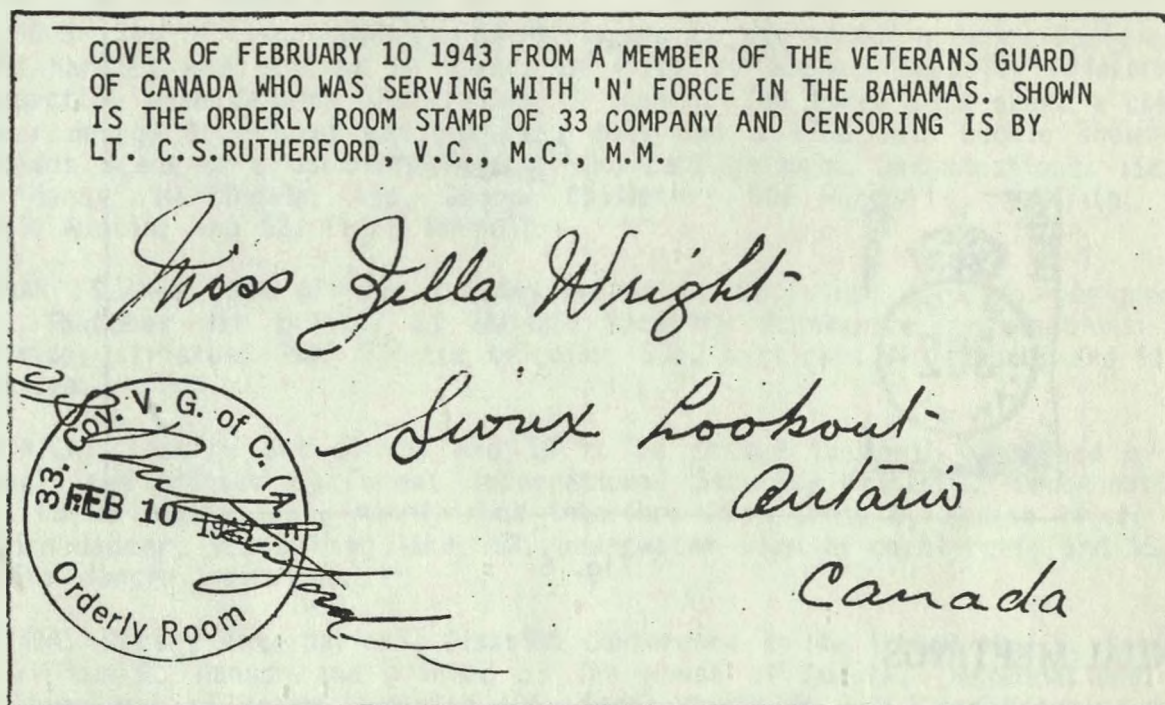 COVER OF FEBRUARY 10 1943 FROM A MEMBER OF THE VETERANS GUARD
OF CANADA WHO WAS SERVING WITH 'N' FORCE IN THE BAHAMAS. SHOWN
IS THE ORDERLY ROOM STAMP OF 33 COMPANY AND CENSORING IS BY
LT. C S.RUTHERFORD, V.C., M.C., M.M.
Miss Zella Wright
Sioux Lookout
Ontario
Canada
33. COY. V. G. of C. A.F.
FEB 10 1943
Orderly Room